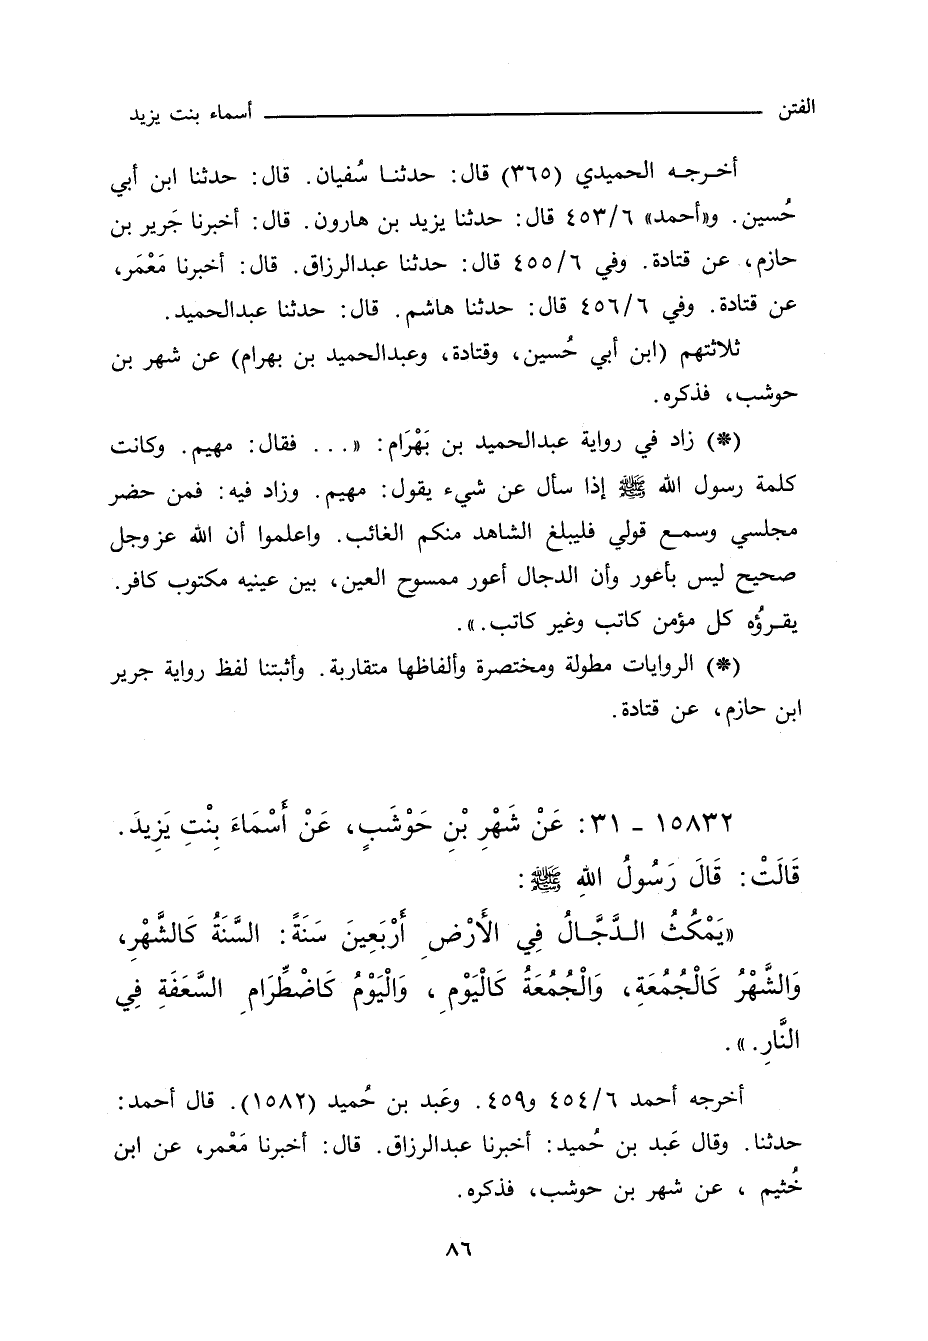 الفتن ــــــــــــــــــــ أسماء بنت يزيد
أخـرجـه الحميدي (٣٦٥) قال: حدثنـا سُفيان. قال: حدثنا ابن أبي
حُسين. و«أحمد» ٤٥٣/٦ قال: حدثنا يزيد بن هارون. قال: أخبرنا جَرير بن
حازم، عن قتادة. وفي ٤٥٥/٦ قال: حدثنا عبدالرزاق. قال: أخبرنا مَعْمَر،
عن قتادة. وفي ٤٥٦/٦ قال: حدثنا هاشم. قال: حدثنا عبدالحميد.
ثلاثتهم (ابن أبي حُسين، وقتادة، وعبدالحميد بن بهرام) عن شهر بن
حوشب، فذكره.
(*) زاد في رواية عبدالحميد بن بَهْرَام: «... فقال: مهيم. وكانت
كلمة رسول الله ﷺ إذا سأل عن شيء يقول: مهيم. وزاد فيه: فمن حضر
مجلسي وسمـع قولي فليبلغ الشاهد منكم الغائب. واعلموا أن الله عز وجل
صحيح ليس بأعور وأن الدجال أعور ممسوح العين، بين عينيه مكتوب كافر.
يقـرؤُه كل مؤمن كاتب وغير كاتب.».
(*) الروايات مطولة ومختصرة وألفاظها متقاربة. وأثبتنا لفظ رواية جرير
ابن حازم، عن قتادة.
١٥٨٣٢ - ٣١: عَنْ شَهْرِ بْنِ حَوْشَبٍ، عَنْ أَسْمَاءَ بِنْتِ يَزِيدَ.
قَالَتْ: قَالَ رَسُولُ اللهِ ﷺ:
«يَمْكُثُ الـدَّجَّالُ فِي الأَرْضِ أَرْبَعِينَ سَنَةً: السَّنَةُ كَالشَّهْرِ،
وَالشَّهْرُ كَالْجُمُعَةِ، وَالْجُمُعَةُ كَالْيَوْمِ، وَالْيَوْمُ كَاضْطِّرَامِ السَّعَفَةِ فِي
النَّارِ.».
أخرجه أحمد ٤٥٤/٦ و٤٥٩. وعَبد بن حُميد (١٥٨٢). قال أحمد:
حدثنا. وقال عَبد بن حُميد: أخبرنا عبدالرزاق. قال: أخبرنا مَعْمر، عن ابن
خُثيم ، عن شهر بن حوشب، فذكره.
٨٦